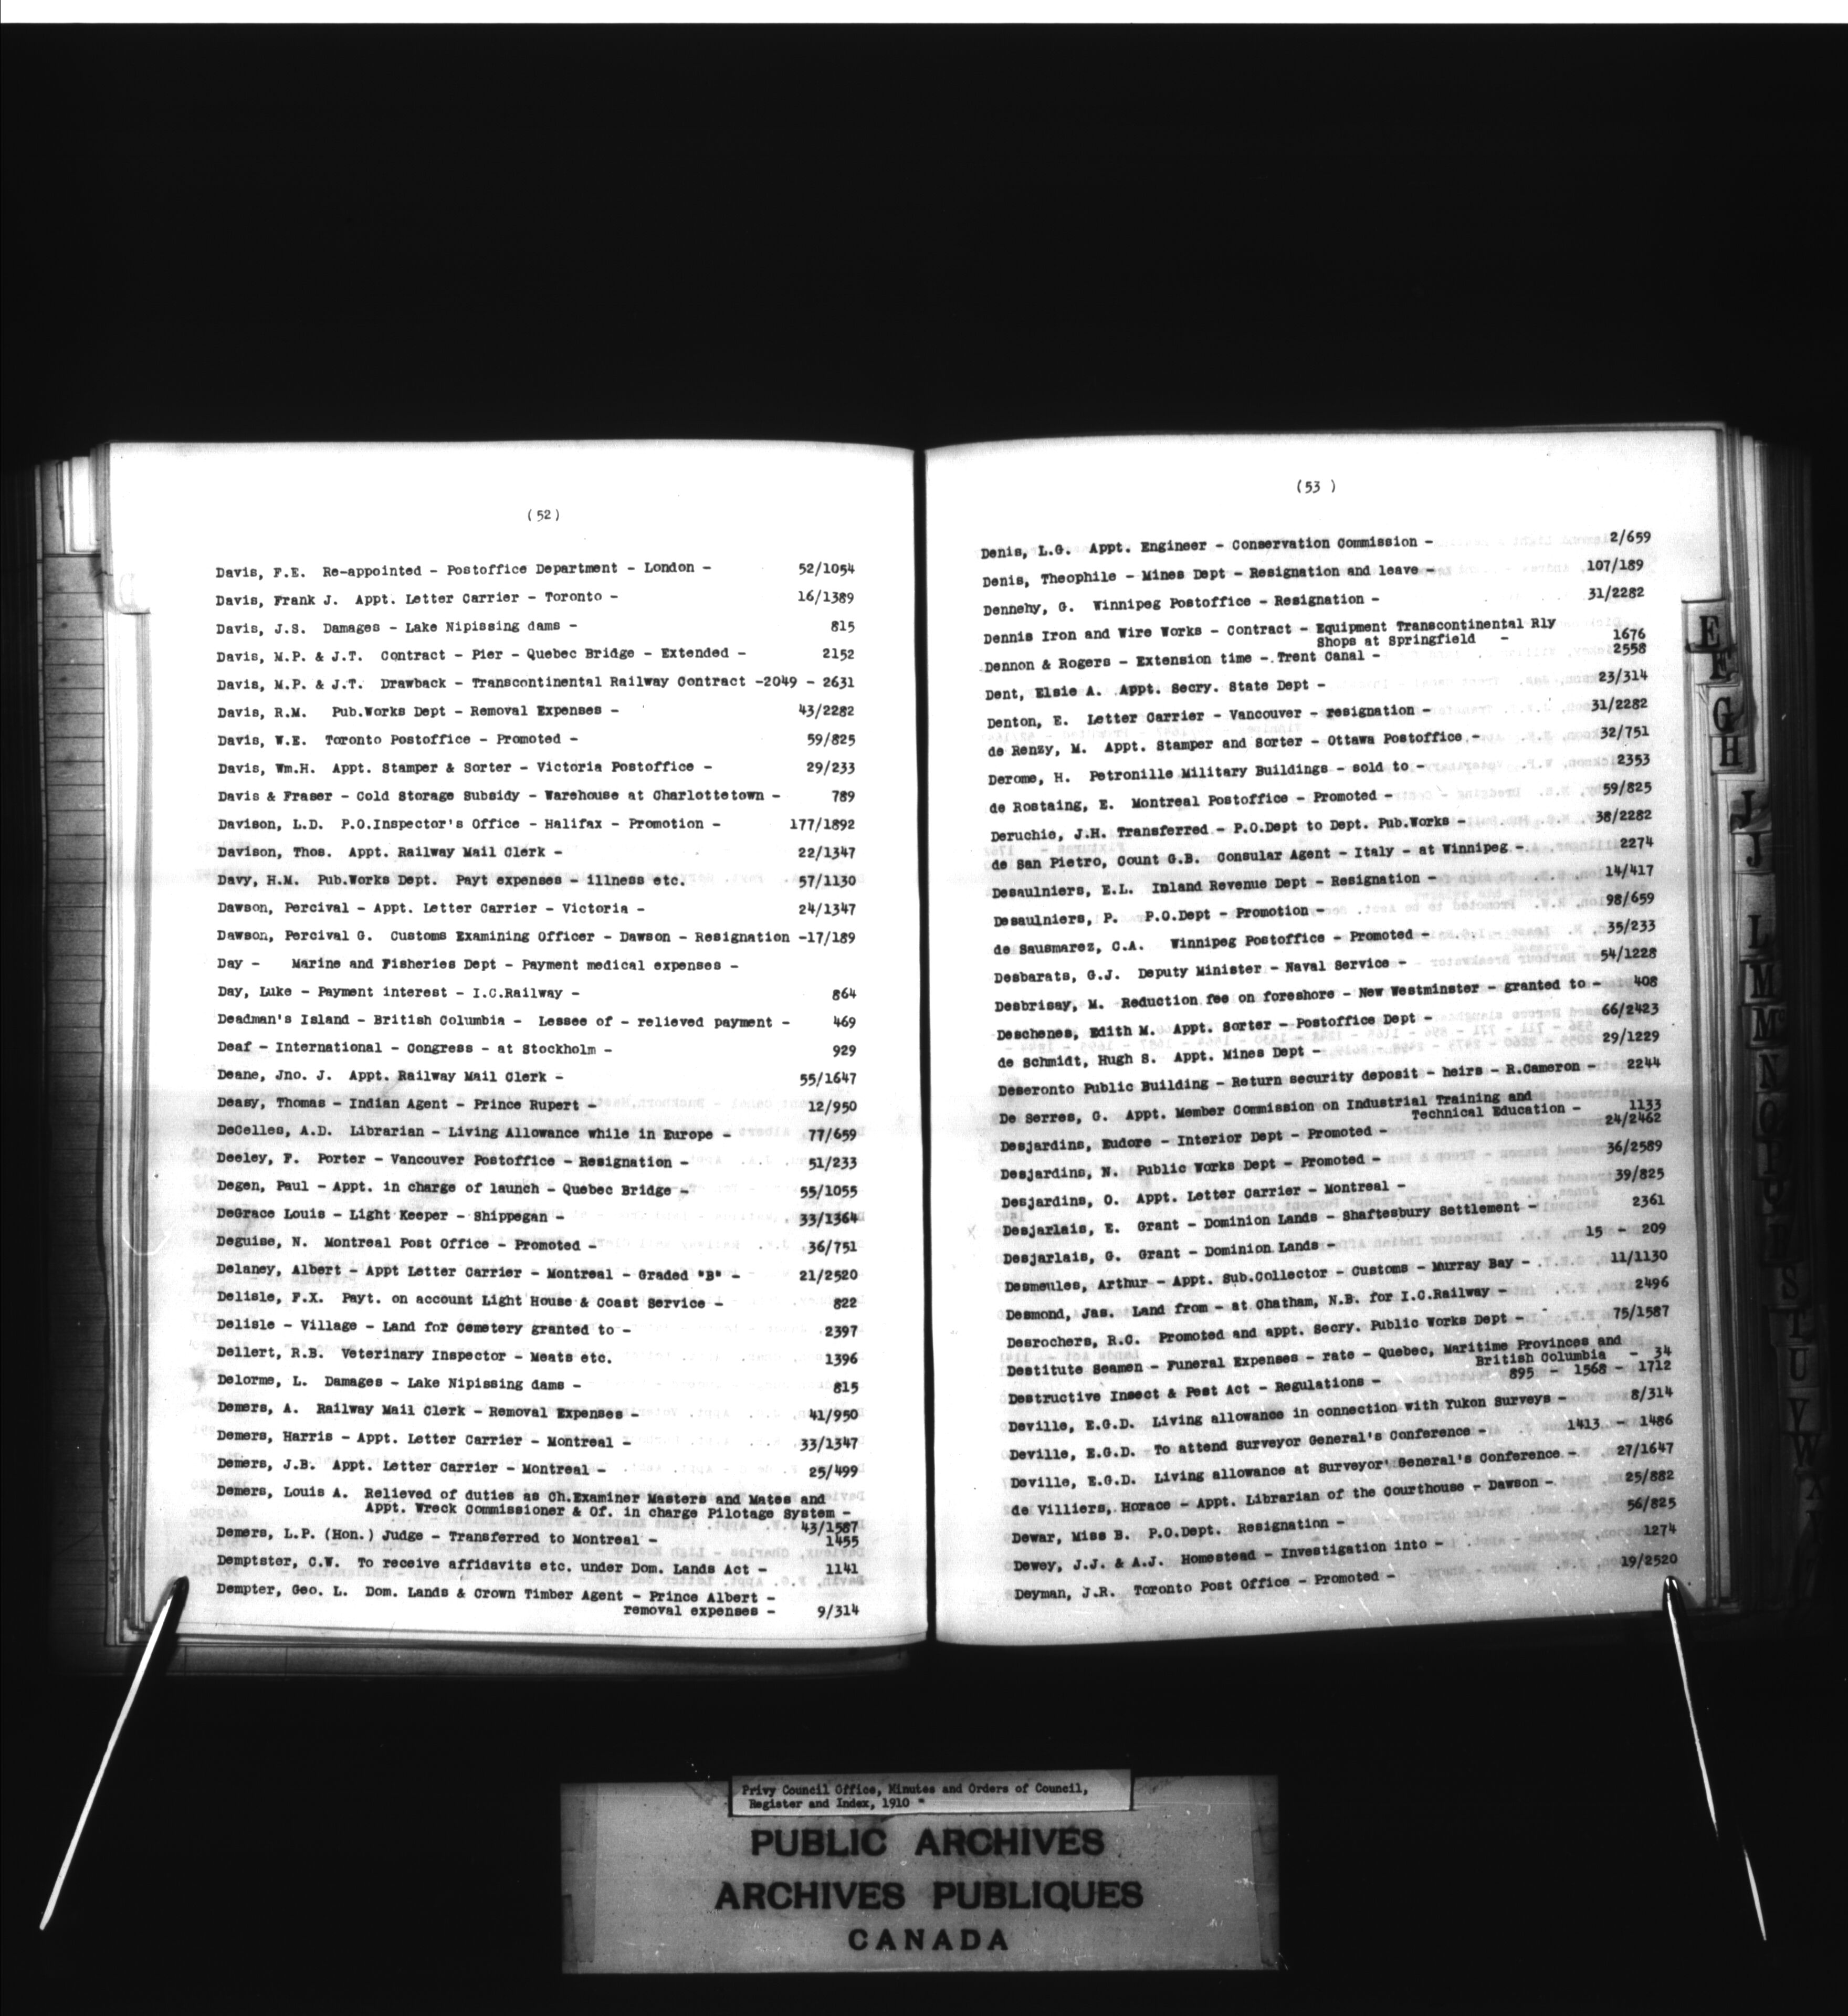 (52)
Davis, F.E. Re-appointed - Postoffice Department - London - 52/1054
Davis, Frank J. Appt. Letter Carrier - Toronto - 16/1389
Davis, J.S. Damages - Lake Nipissing dams - 815
Davis, M.P. & J.T. Contract - Pier - Quebec Bridge - Extended - 2152
Davis, M.P. & J.T. Drawback - Transcontinental Railway Contract -2049 - 2631
Davis, R.M. Pub.Works Dept - Removal Expenses - 43/2282
Davis, W.E. Toronto Postoffice - Promoted - 59/825
Davis, Wm.H. Appt. Stamper & Sorter - Victoria Postoffice - 29/233
Davis & Fraser - Cold Storage Subsidy - Warehouse at Charlottetown - 789
Davison, L.D. P.O.Inspector's Office - Halifax - Promotion - 177/1892
Davison, Thos. Appt. Railway Mail Clerk - 22/1347
Davy, H.M. Pub.Works Dept. Payt expenses - illness etc. 57/1130
Dawson, Percival - Appt. Letter Carrier - Victoria - 24/1347
Dawson, Percival G. Customs Examining Officer - Dawson - Resignation -17/189
Day - Marine and Fisheries Dept - Payment medical expenses -
Day, Luke - Payment interest - I.C.Railway - 864
Deadman's Island - British Columbia - Lessee of - relieved payment - 469
Deaf - International - Congress - at Stockholm - 929
Deane, Jno. J. Appt. Railway Mail Clerk - 55/1647
Deasy, Thomas - Indian Agent - Prince Rupert - 12/950
DeCelles, A.D. Librarian - Living Allowance while in Europe - 77/659
Deeley, F. Porter - Vancouver Postoffice - Resignation - 51/233
Degen, Paul - Appt. in charge of launch - Quebec Bridge - 55/1055
DeGrace Louis - Light Keeper - Shippegan - 33/1364
Deguise, N. Montreal Post Office - Promoted - 36/751
Delaney, Albert - Appt Letter Carrier - Montreal - Graded "B" - 21/2520
Delisle, F.X. Payt. on account Light House & Coast Service - 822
Delisle - Village - Land for Cemetery granted to - 2397
Dellert, R.B. Veterinary Inspector - Meats etc. 1396
Delorme, L. Damages - Lake Nipissing dams - 815
Demers, A. Railway Mail Clerk - Removal Expenses - 41/950
Demers, Harris - Appt. Letter Carrier - Montreal - 33/1347
Demers, J.B. Appt. Letter Carrier - Montreal - 25/499
Demers, Louis A. Relieved of duties as Ch.Examiner Masters and Mates and
Appt. Wreck Commissioner & Of. in charge Pilotage System -
43/1587
Demers, L.P. (Hon.) Judge - Transferred to Montreal - 1455
Demptster, C.W. To receive affidavits etc. under Dom. Lands Act - 1141
Dempter, Geo. L. Dom. Lands & Crown Timber Agent - Prince Albert -
removal expenses - 9/314
(53 )
Denis, L.G. Appt. Engineer - Conservation Commission - 2/659
Denis, Theophile - Mines Dept - Resignation and leave - 107/189
Dennehy, G. Winnipeg Postoffice - Resignation - 31/2282
Dennis Iron and Wire Works - Contract - Equipment Transcontinental Rly
Shops at Springfield - 1676
Dennon & Rogers - Extension time - Trent Canal - 2558
Dent, Elsie A. Appt. Secry. State Dept - 23/314
Denton, E. Letter Carrier - Vancouver - resignation - 31/2282
de Renzy, M. Appt. Stamper and Sorter - Ottawa Postoffice - 32/751
Derome, H. Petronille Military Buildings - sold to - 2353
de Rostaing, E. Montreal Postoffice - Promoted - 59/825
Deruchie, J.H. Transferred - P.O.Dept to Dept. Pub.Works - 38/2282
de San Pietro, Count G.B. Consular Agent - Italy - at Winnipeg - 2274
Desaulniers, E.L. Inland Revenue Dept - Resignation - 14/417
Desaulniers, P. P.O.Dept - Promotion - 98/659
de Sausmarez, C.A. Winnipeg Postoffice - Promoted - 35/233
Desbarats, G.J. Deputy Minister - Naval Service - 54/1228
Desbrisay, M. Reduction fee on foreshore - New Westminster - granted to - 408
Deschenes, Edith M. Appt. Sorter - Postoffice Dept - 66/2423
de Schmidt, Hugh S. Appt. Mines Dept - 29/1229
Deseronto Public Building - Return security deposit - heirs - R.Cameron - 2244
De Serres, G. Appt. Member Commission on Industrial Training and
Technical Education - 1133
Desjardins, Eudore - Interior Dept - Promoted - 24/2462
Desjardins, N. Public Works Dept - Promoted - 36/2589
Desjardins, O. Appt. Letter Carrier - Montreal - 39/825
Desjarlais, E. Grant - Dominion Lands - Shaftesbury Settlement - 2361
Desjarlais, G. Grant - Dominion Lands - 15 - 209
Desmeules, Arthur - Appt. Sub.Collector - Customs - Murray Bay - 11/1130
Desmond, Jas. Land from - at Chatham, N.B. for I.C.Railway - 2496
Desrochers, R.C. Promoted and appt. Secry. Public Works Dept - 75/1587
Destitute Seamen - Funeral Expenses - rate - Quebec, Maritime Provinces and
British Columbia - 34
Destructive Insect & Pest Act - Regulations - 895 - 1568 - 1712
Deville, E.G.D. Living allowance in connection with Yukon Surveys - 8/314
Deville, E.G.D. To attend Surveyor General's Conference - 1413 - 1486
Deville, E.G.D. Living allowance at Surveyor General's Conference - 27/1647
de Villiers, Horace - Appt. Librarian of the Courthouse - Dawson - 25/882
Dewar, Miss B. P.O.Dept. Resignation - 56/825
Dewey, J.J. & A.J. Homestead - Investigation into - 1274
Deyman, J.R. Toronto Post Office - Promoted - 19/2520
E
F
G
H
J
L
M
N
S
T
U
V
W
X
Privy Council Office, Minutes and Orders of Council,
Register and Index, 1910 "
PUBLIC ARCHIVES
ARCHIVES PUBLIQUES
CANADA